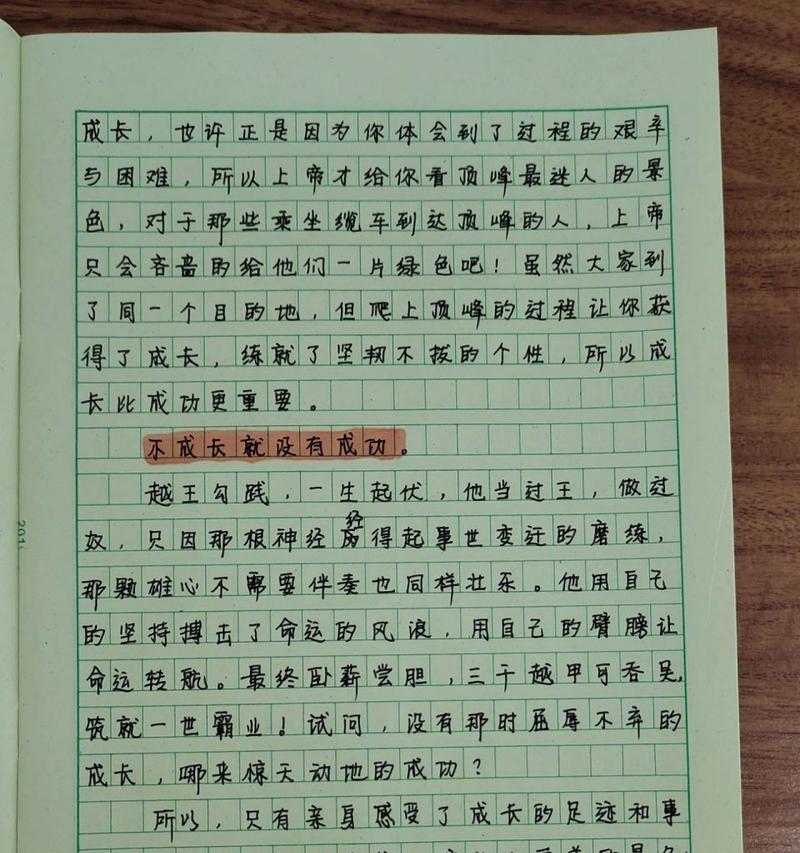 成长，也许正是因为你体会到了过程的艰辛
与困难，所以上帝才给你看顶峰最迷人的景
色，对于那些乘坐缆车到达顶峰的人，上帝
只会吝啬的给他们一片绿色吧！虽然大家到
了同一个目的地，但爬上顶峰的过程让你获
得了成长，练就了坚韧不拔的个性，所以成
长比成功更重要。
不成长就没有成功。
越王勾践，一生起伏，他当过王，做过
奴，只因那根神经经得起事世变迁的磨练，
那颗雄心不需要伴奏也同样壮乐。他用自己
的坚持搏击了命运的风浪，用自己的臂膀让
命运转航。最终卧薪尝胆，三千越甲可吞吴，
筑就一世霸业！试问，没有那时屈辱不弃的
成长，哪来惊天动地的成功？
所以，只有亲身感受了成长的足迹和事